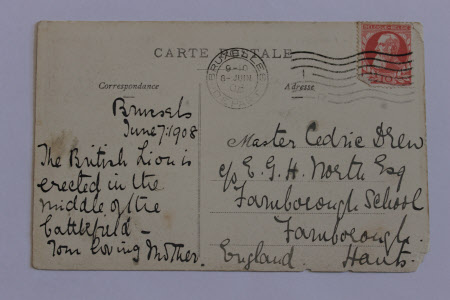 CARTE POSTALE
Correspondance
Adresse
BRUXELLES
8 JUIN
08
10
Brussels
June 7: 1908
The British Lion is
erected in the
middle of the
battlefield —
Your loving Mother.
Master Cedric Drew
c/o E. G. H. North Esq
Farnborough School
Farnborough.
England. Hants.